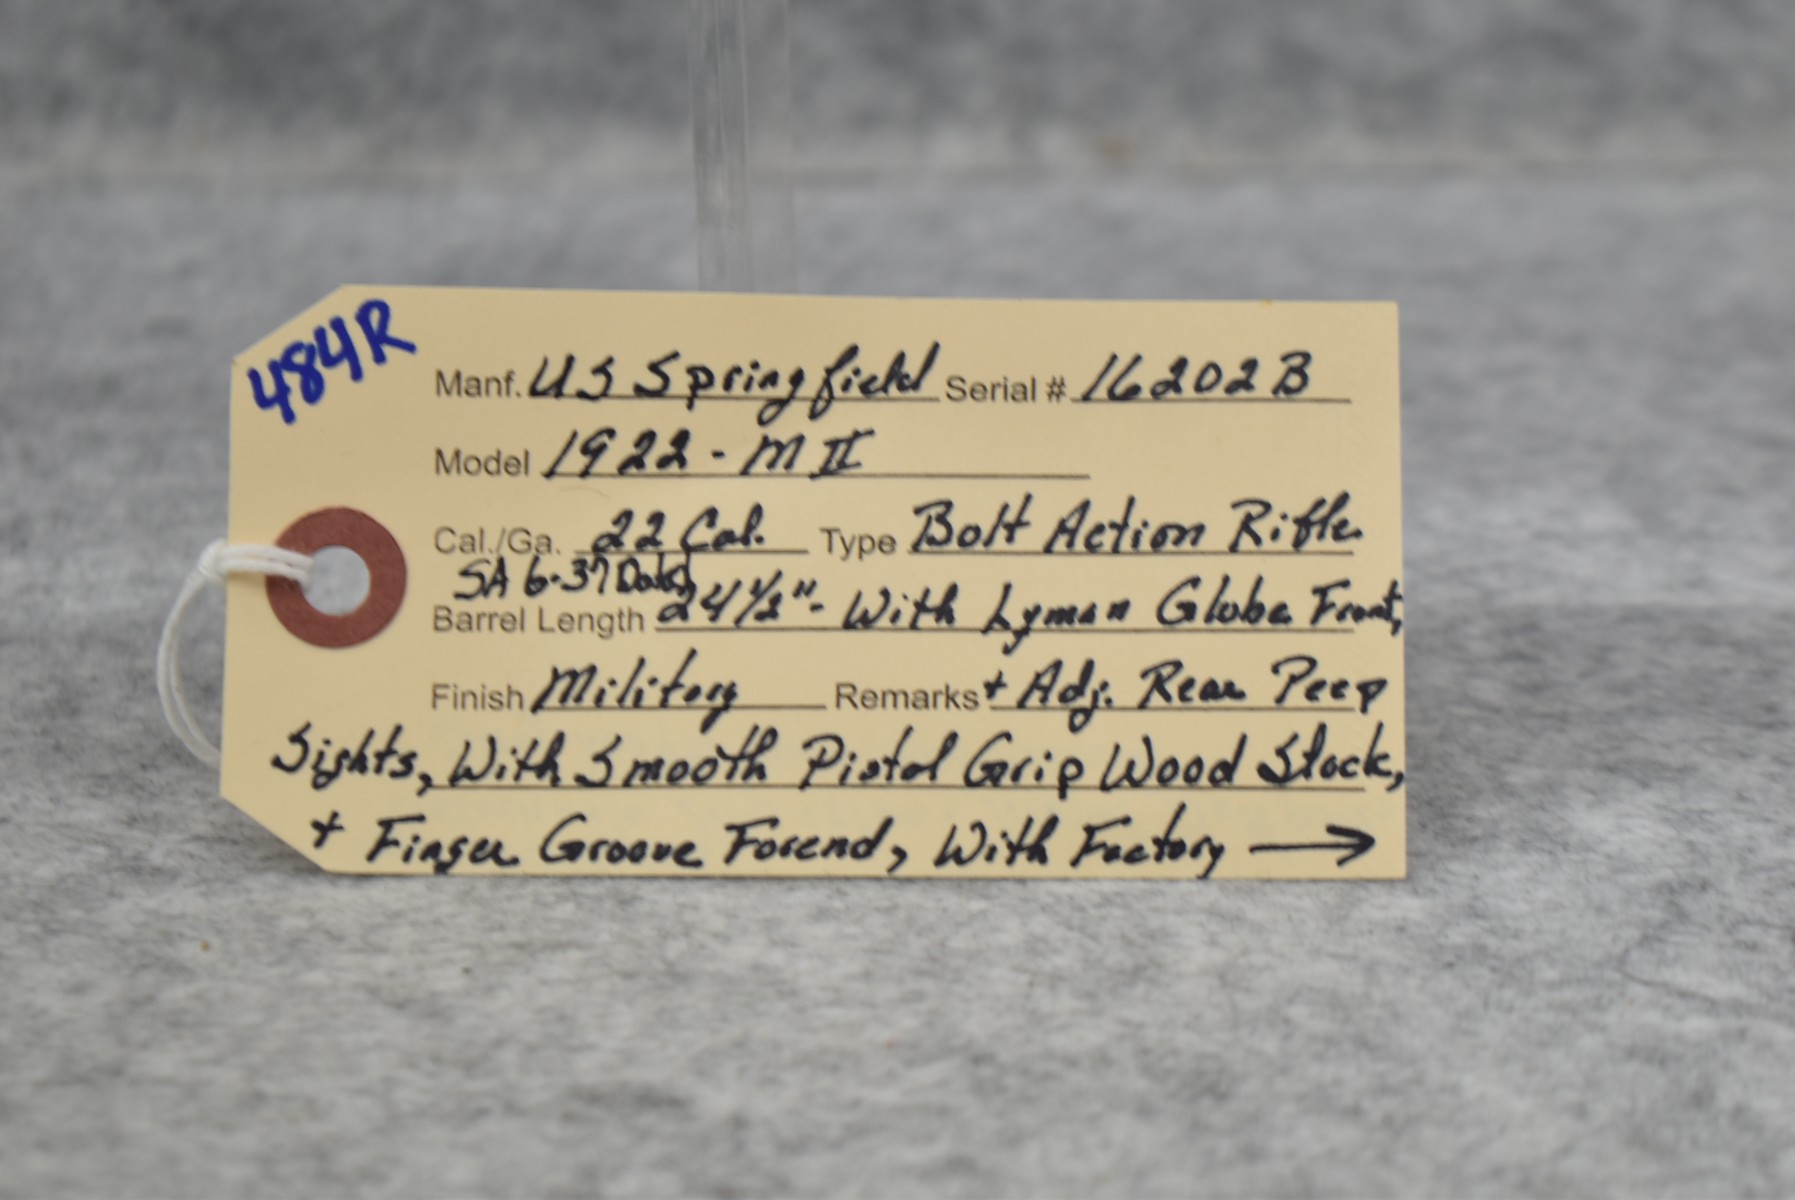 484R
Manf. US Springfield Serial # 16202B
Model 1922-MII
Cal./Ga. 22 Cal. Type Bolt Action Rifle
SA 6-37 Dated
Barrel Length 24 1/2" - With Lyman Globe Front,
Finish Military Remarks + Adj. Rear Peep
Sights, With Smooth Pistol Grip Wood Stock,
+ Finger Groove Forend, With Factory →